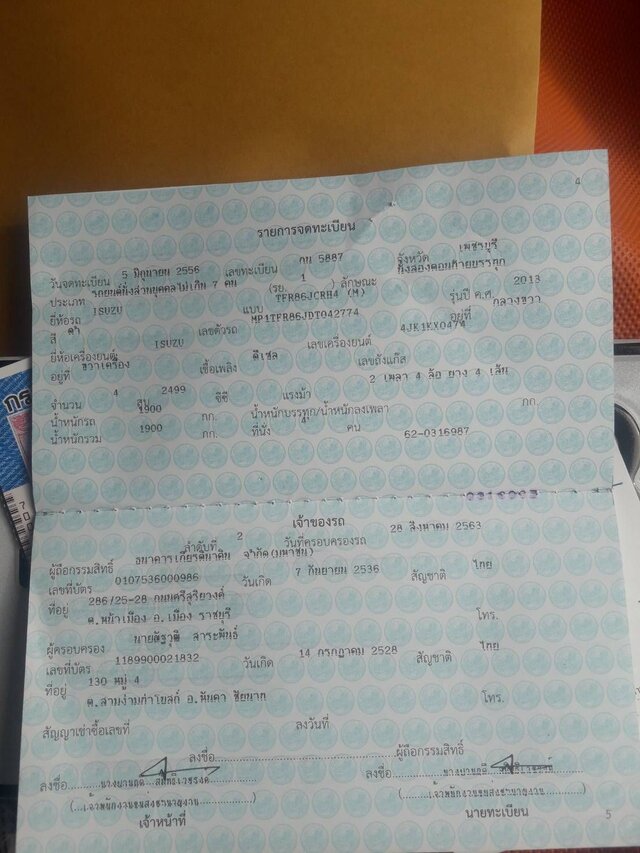 4
รายการจดทะเบียน
วันจดทะเบียน 5 มิถุนายน 2556 เลขทะเบียน กน 5887 จังหวัด เพชรบุรี
ประเภท รถยนต์นั่งส่วนบุคคลไม่เกิน 7 คน (รย. 1 ) ลักษณะ นั่งสองตอนท้ายบรรทุก
ยี่ห้อรถ ISUZU แบบ TFR86JCRH4 (M) รุ่นปี ค.ศ. 2013
สี ดำ เลขตัวรถ MP1TFR86JDT042774 อยู่ที่ กลางขวา
ยี่ห้อเครื่องยนต์ ISUZU เลขเครื่องยนต์ 4JK1KX0474
อยู่ที่ ขวาเครื่อง เชื้อเพลิง ดีเซล เลขถังแก๊ส
จำนวน 4 สูบ 2499 ซีซี แรงม้า 2 เพลา 4 ล้อ ยาง 4 เส้น
น้ำหนักรถ 1900 กก. น้ำหนักบรรทุก/น้ำหนักลงเพลา กก.
น้ำหนักรวม 1900 กก. ที่นั่ง 4 คน 62-0316987
เจ้าของรถ
ลำดับที่ 2 วันที่ครอบครองรถ 28 สิงหาคม 2563
ผู้ถือกรรมสิทธิ์ ธนาคารเกียรตินาคิน จำกัด(มหาชน)
เลขที่บัตร 0107536000986 วันเกิด 7 กันยายน 2536 สัญชาติ ไทย
ที่อยู่ 286/25-28 ถนนศรีสุริยวงค์
ต.หน้าเมือง อ.เมือง ราชบุรี โทร.
ผู้ครอบครอง สาระพันธ์
เลขที่บัตร 1189900021832 วันเกิด 14 กรกฎาคม 2528 สัญชาติ ไทย
ที่อยู่ 130 หมู่ 4
ต.สามง่ามท่าโบสถ์ อ.หันคา ชัยนาท โทร.
สัญญาเช่าซื้อเลขที่ ลงวันที่
ลงชื่อ ผู้ถือกรรมสิทธิ์
ลงชื่อ ลงชื่อ
(...เจ้าพนักงานขนส่งชำนาญงาน...) (...เจ้าพนักงานขนส่งชำนาญงาน...)
เจ้าหน้าที่ นายทะเบียน
5